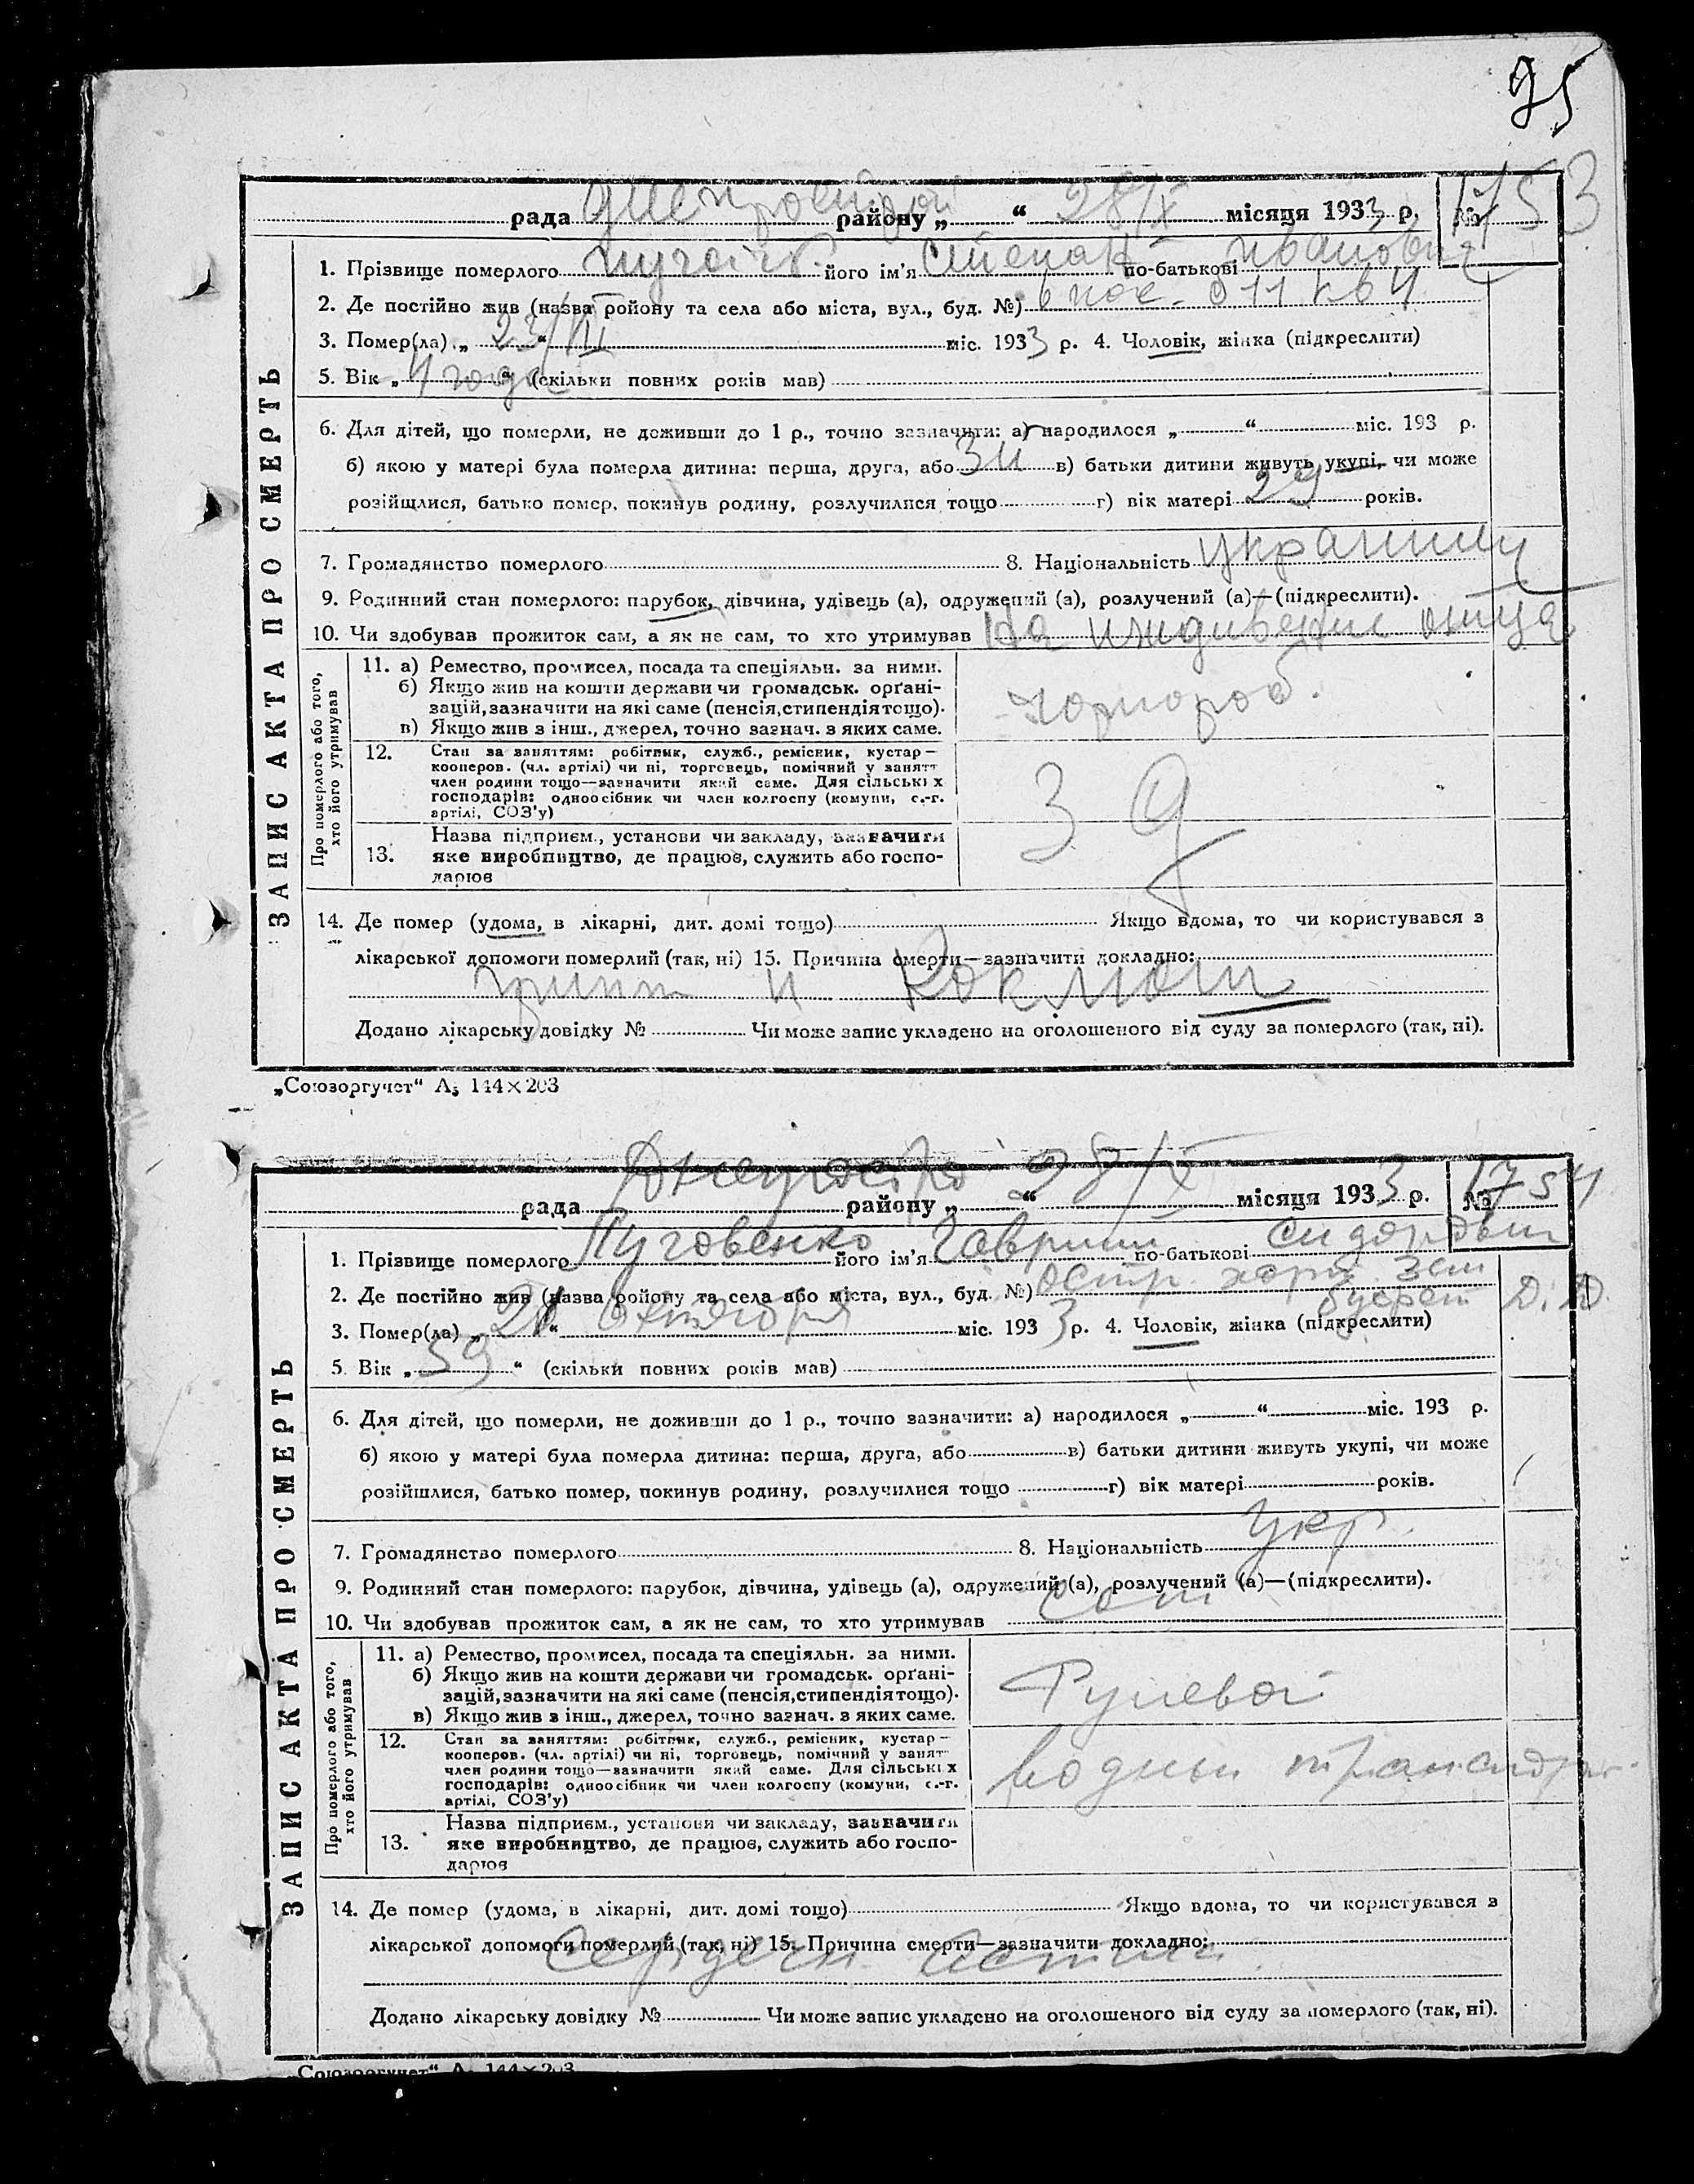 95
рада Днепрострой району „ “ 28/X місяця 1933 р. № 1753
ЗАПИС АКТА ПРО СМЕРТЬ
1. Прізвище померлого його ім'я Степан по-батькові Иванович
2. Де постійно жив (назва району та села або міста, вул., буд. №) 6 пос. 11 кв 4
3. Помер(ла) „ 23/VII “ міс. 1933 р. 4. Чоловік, жінка (підкреслити)
5. Вік „ 4 года “ (скільки повних років мав)
6. Для дітей, що померли, не доживши до 1 р., точно зазначити: а) народилося „ “ міс. 193 р.
б) якою у матері була померла дитина: перша, друга, або 3й в) батьки дитини живуть укупі, чи може
розійшлися, батько помер, покинув родину, розлучилися тощо г) вік матері 29 років.
7. Громадянство померлого 8. Національність украинец
9. Родинний стан померлого: парубок, дівчина, удівець (а), одружений (а), розлучений (а)—(підкреслити).
10. Чи здобував прожиток сам, а як не сам, то хто утримував На иждивении отца
Про померлого або того, хто його утримував
11. а) Ремество, промисел, посада та спеціяльн. за ними.
б) Якщо жив на кошти держави чи громадськ. орґані-
зацій, зазначити на які саме (пенсія, стипендія тощо).
в) Якщо жив з інш., джерел, точно зазнач. з яких саме.
чорнороб.
12. Стан за заняттям: робітник, служб., ремісник, кустар—
кооперов. (чл. артілі) чи ні, торговець, помічний у занятт
член родини тощо—зазначити який саме. Для сільських
господарів: одноосібник чи член колгоспу (комуни, с.-г.
артілі, СОЗ'у)
13. Назва підприєм., установи чи закладу, зазначити
яке виробництво, де працює, служить або госпо-
дарює
14. Де помер (удома, в лікарні, дит. домі тощо) Якщо вдома, то чи користувався з
лікарської допомоги померлий (так, ні) 15. Причина смерти—зазначити докладно:
грипп и Коклюш
Додано лікарську довідку № Чи може запис укладено на оголошеного від суду за померлого (так, ні).
„Союзоргучет“ А5 144×203
рада району „ “ 28/X місяця 1933 р. № 1754
ЗАПИС АКТА ПРО СМЕРТЬ
1. Прізвище померлого Пуговенко його ім'я Гавриил по-батькові Сидорович
2. Де постійно жив (назва району та села або міста, вул., буд. №) Остр. хорт. зем
3. Помер(ла) „ 28 “ Октября міс. 1933 р. 4. Чоловік, жінка (підкреслити)
5. Вік „ 59 “ (скільки повних років мав)
6. Для дітей, що померли, не доживши до 1 р., точно зазначити: а) народилося „ “ міс. 193 р.
б) якою у матері була померла дитина: перша, друга, або в) батьки дитини живуть укупі, чи може
розійшлися, батько помер, покинув родину, розлучилися тощо г) вік матері років.
7. Громадянство померлого 8. Національність Укр.
9. Родинний стан померлого: парубок, дівчина, удівець (а), одружений (а), розлучений (а)—(підкреслити).
10. Чи здобував прожиток сам, а як не сам, то хто утримував Сам
Про померлого або того, хто його утримував
11. а) Ремество, промисел, посада та спеціяльн. за ними.
б) Якщо жив на кошти держави чи громадськ. орґані-
зацій, зазначити на які саме (пенсія, стипендія тощо).
в) Якщо жив з інш., джерел, точно зазнач. з яких саме.
Рулевой
12. Стан за заняттям: робітник, служб., ремісник, кустар—
кооперов. (чл. артілі) чи ні, торговець, помічний у занят
член родини тощо—зазначити який саме. Для сільських
господарів: одноосібник чи член колгоспу (комуни, с.-г.
артілі, СОЗ'у)
водный
13. Назва підприєм., установи чи закладу, зазначити
яке виробництво, де працює, служить або госпо-
дарює
14. Де помер (удома, в лікарні, дит. домі тощо) Якщо вдома, то чи користувався з
лікарської допомоги померлий (так, ні) 15. Причина смерти—зазначити докладно:
Сердечн.
Додано лікарську довідку № Чи може запис укладено на оголошеного від суду за померлого (так, ні).
„Союзоргучет“ А5 144×203